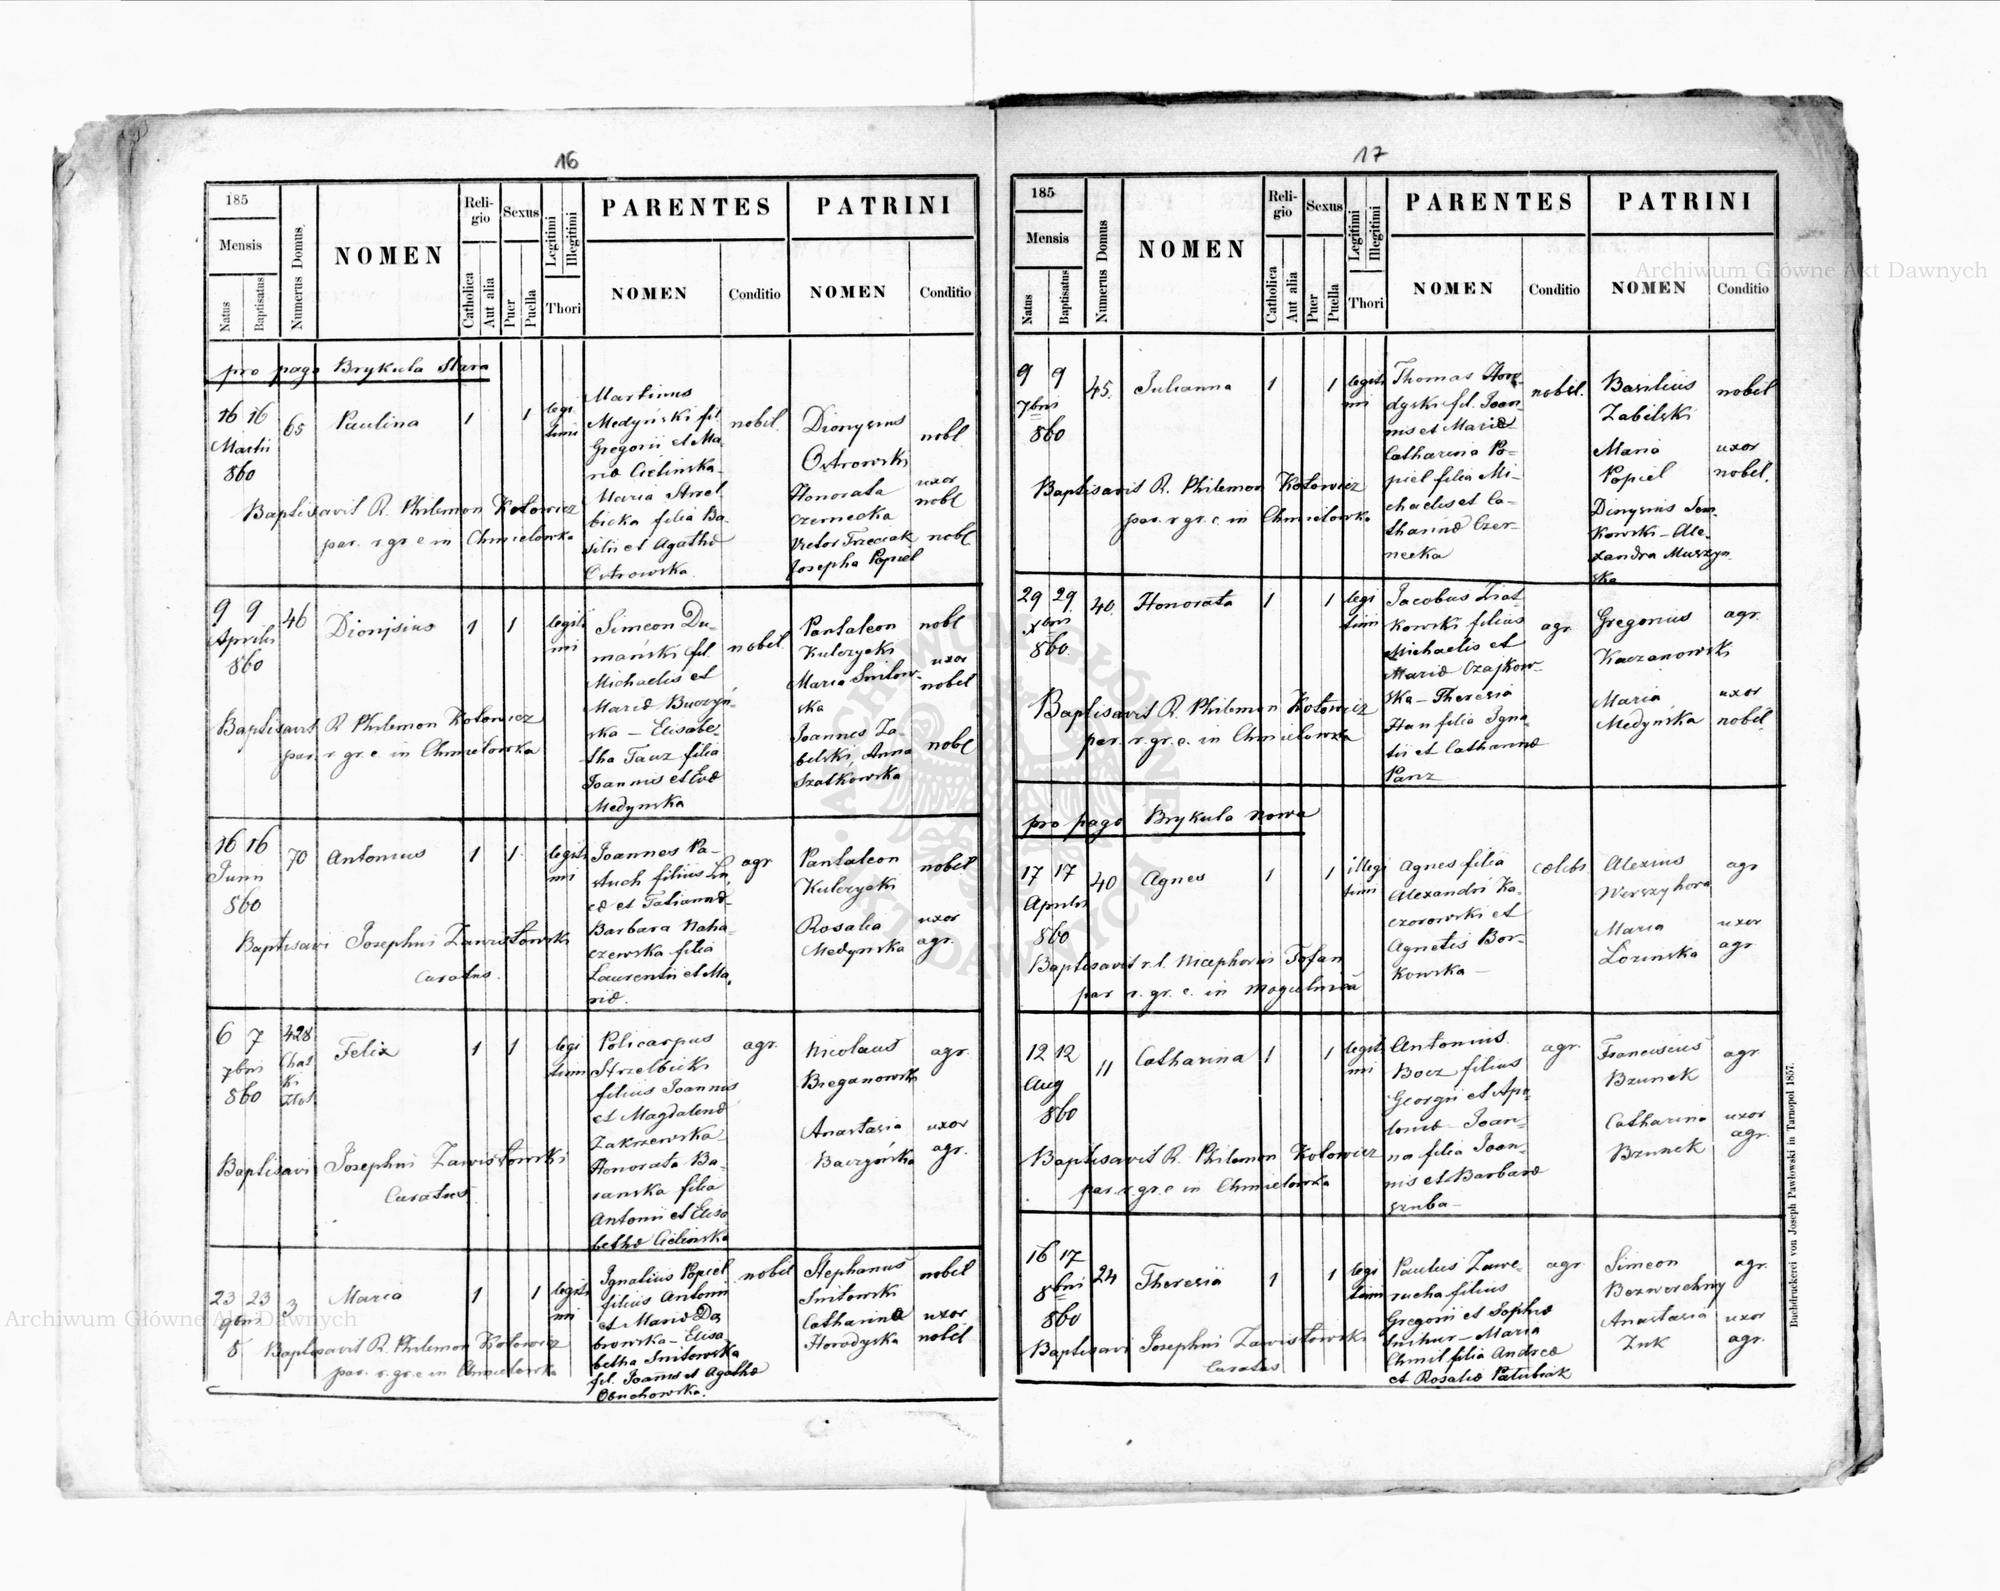 16
185
Mensis
Natus
Baptisatus
Numerus Domus
NOMEN
Reli-
gio
Catholica
Aut alia
Sexus
Puer
Puella
Legitimi
Illegitimi
Thori
PARENTES
NOMEN
Conditio
PATRINI
NOMEN
Conditio
pro pago Brykula Stara
16 16
Martii
860
65
Paulina
1
1
legi
timi
Martinus
Medyński fil.
Gregorii et Ma-
riæ Cielinska
Maria Strzel
bicka filia Ba-
silii et Agathæ
Ostrowska
nobil.
Dionysius
Ostrowski
Honorata
Czernecka
Victor Trzeciak
Josepha Popiel
nobl
uxor
nobl
nobl
Baptisavit R. Philemon Kotowicz
par. r. gr. c. in Chmielowka
9 9
Aprilis
860
46
Dionisius
1
1
legiti
mi
Simeon Du-
mański fil.
Michaelis et
Mariæ Buczyń-
ska – Elisabe-
tha Tauz filia
Joannis et Evæ
Medynska
nobil.
Pantaleon
Kulczycki
Maria Snitow-
ska
Joannes Za-
belski, Anna
Szatkowska
nobl
uxor
nobil
nobl
Baptisavit R Philemon Kotowicz
par. r gr. c. in Chmielowka
16 16
Junii
860
70
Antonius
1
1
legiti
mi
Joannes Pa-
stuch filius Lu-
cæ et Tatiannæ
Barbara Naha-
czewska filia
Laurentii et Ma-
riæ.
agr
Pantaleon
Kulczycki
Rosalia
Medynska
nobil
uxor
agr.
Baptisavi Josephus Zawistowski
Curatus.
6 7
7bris
860
428
Felix
1
1
legi
timi
Policarpus
Strzelbicki
filius Joannis
et Magdalenæ
Zakrzewska
Honorata Ba-
ranska filia
Antonii et Elisa
bethæ Cielinska
agr.
Nicolaus
Breganowski
Anastasia
Baczyńska
agr.
uxor
agr.
Baptisavi Josephus Zawistowski
Curatus
23 23
9bris
8
3
Maria
1
1
legiti
mi
Ignatius Popiel
filius Antonii
et Mariæ Dą
browska – Elisa
betha Snitowska
fil. Joannis et Agathæ
Obuchowska.
nobil
Stephanus
Snitowski
Catharina
Horodyska
nobil
uxor
nobil
Baptisavit R. Philemon Kotowicz
par. r. gr. c. in Chmielowka
17
185
Mensis
Natus
Baptisatus
Numerus Domus
NOMEN
Reli-
gio
Catholica
Aut alia
Sexus
Puer
Puella
Legitimi
Illegitimi
Thori
PARENTES
NOMEN
Conditio
PATRINI
NOMEN
Conditio
9 9
7bris
860
45.
Julianna
1
1
legiti
mi
Thomas Horo-
dyski fil. Joan-
nis et Mariæ
Catharina Po-
piel filia Mi-
chaelis et Ca-
tharinæ Czer-
necka
nobil.
Basilius
Zabilski
Maria
Popiel
Dionysius Sem-
kowski – Ale-
xandra Muszyn-
ska
nobil
uxor
nobil.
Baptisavit R. Philemon Kotowicz
par. r gr. c. in Chmielowka
29 29
xbris
860.
40.
Honorata
1
1
legi
timi
Jacobus Szat-
kowski filius
Michaelis et
Mariæ Czajkow-
ska – Theresia
Han filia Igna-
tii et Catharinæ
Panz
agr.
Gregorius
Kaczanowski
Maria
Medyńska
agr.
uxor
nobil.
Baptisavit R. Philemon Kotowicz
par. r. gr. c. in Chmielowka
pro pago Brykula nowa
17 17
Aprilis
860
40
Agnes
1
1
illegi
timi
Agnes filia
Alexandri Ka-
czorowski et
Agnetis Bor-
kowska –
cælebs
Alexius
Werszyhora
Maria
Lozinska
agr
uxor
agr.
Baptisavit r. l. Nicephorus Tofan
par r. gr. c. in Mogielnica
12 12
Aug
860
11
Catharina
1
1
legiti
mi
Antonius
Bocz filius
Georgii et Apo-
loniæ – Joan-
na filia Joan-
nis et Barbaræ
Szuba –
agr.
Franciscus
Brunek
Catharina
Brunek
agr.
uxor
agr.
Baptisavit R. Philemon Kotowicz
par. r. gr. c in Chmielowka
16 17
8bris
860
24
Theresia
1
1
legi
timi
Paulus Zawe-
rucha filius
Gregorii et Sophiæ
Snihur – Maria
Chmil filia Andreæ
et Rosaliæ Patubiak
agr.
Simeon
Bezworchny
Anastasia
Zuk
agr.
uxor
agr.
Baptisavi Josephus Zawistowski
Curatus
Buchdruckerei von Joseph Pawłowski in Tarnopol 1857.
Archiwum Główne Akt Dawnych
Archiwum Główne Akt Dawnych
ARCHIWUM GŁÓWNE AKT DAWNYCH